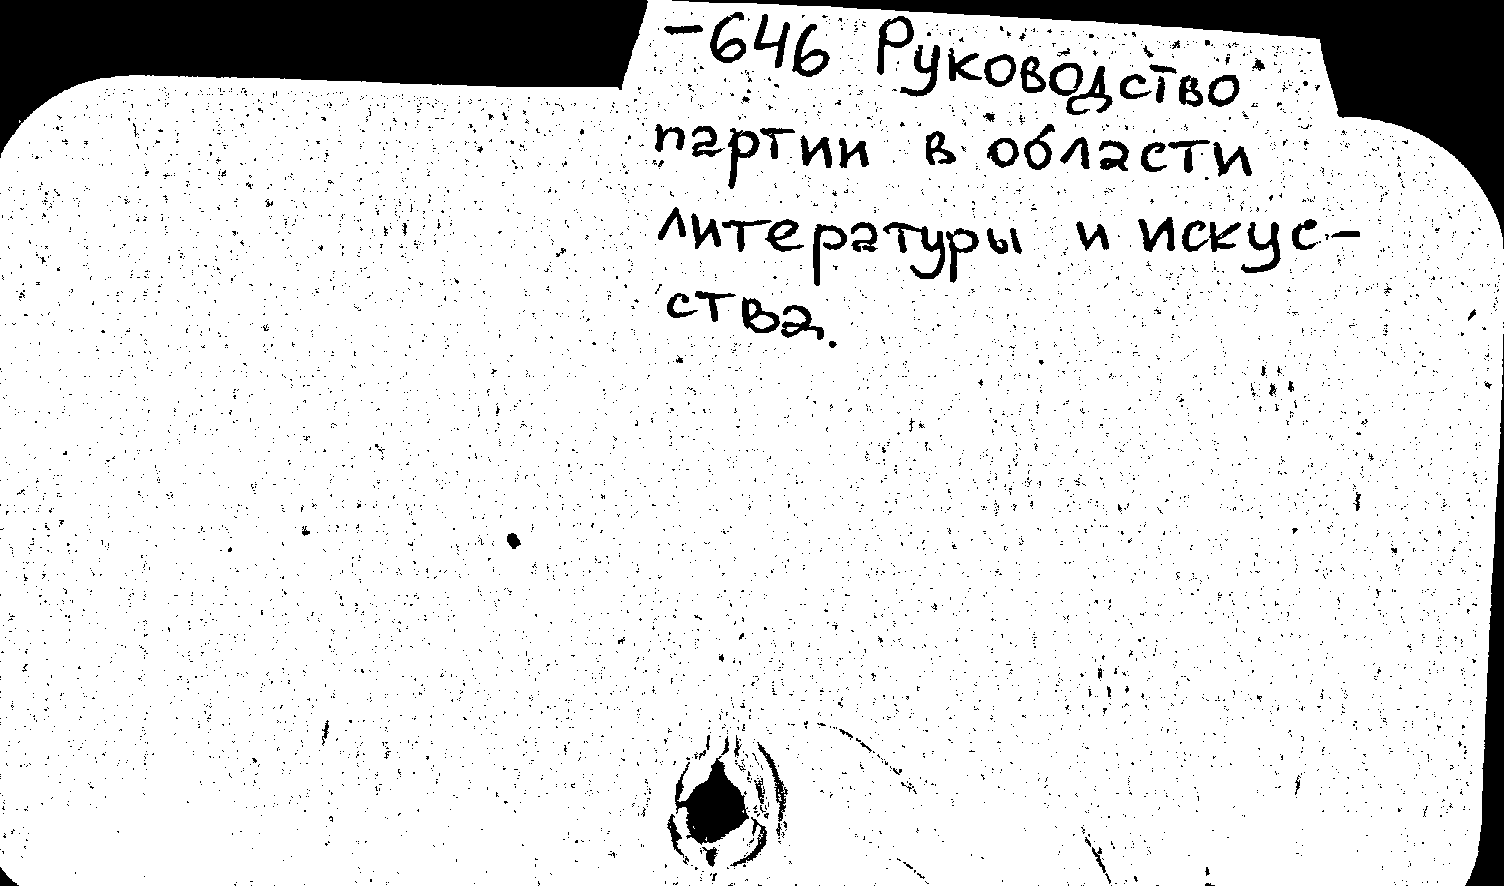 -646 Руководство
партии в области
литературы и искус-
ства.